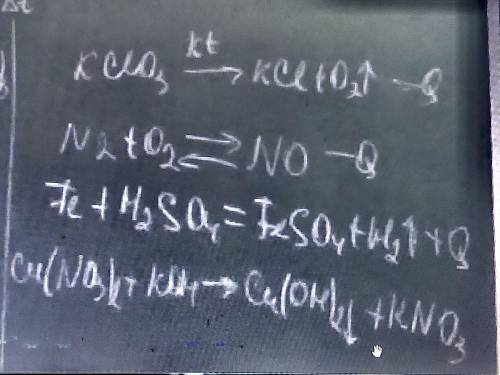 Δt
kt
KClO₃ → KCl + O₂↑ −Q
N₂ + O₂ ⇌ NO −Q
Fe + H₂SO₄ = FeSO₄ + H₂↑ + Q
Cu(NO₃)₂ + KOH → Cu(OH)₂↓ + KNO₃